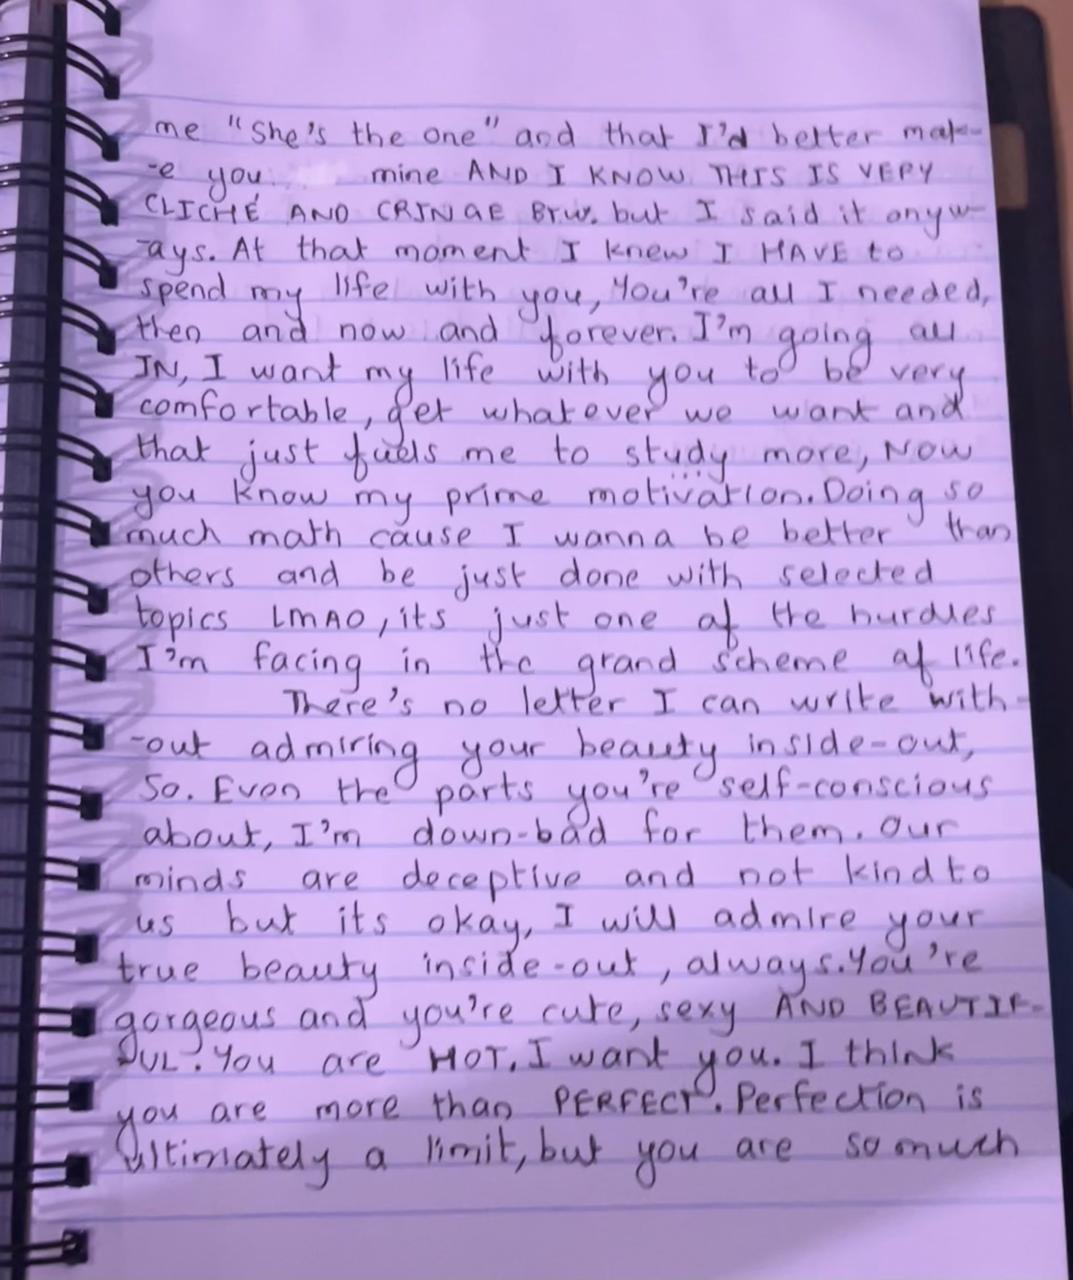 me "She's the one" and that I'd better mak-
-e you mine AND I KNOW THIS IS VERY
CLICHÉ AND CRINGE BTW. but I said it anyw-
-ays. At that moment I knew I HAVE to
spend my life with you, You're all I needed,
then and now and forever. I'm going all
IN, I want my life with you to be very
comfortable, get whatever we want and
that just fuels me to study more, NOW
you know my prime motivation. Doing so
much math cause I wanna be better than
others and be just done with selected
topics LMAO, its just one of the hurdles
I'm facing in the grand scheme of life.
There's no letter I can write with-
-out admiring your beauty inside-out,
So. Even the parts you're self-conscious
about, I'm down-bad for them. Our
minds are deceptive and not kind to
us but its okay, I will admire your
true beauty inside-out, always. You're
gorgeous and you're cute, sexy AND BEAUTIF-
-UL. You are HOT. I want you. I think
you are more than PERFECT. Perfection is
ultimately a limit, but you are so much